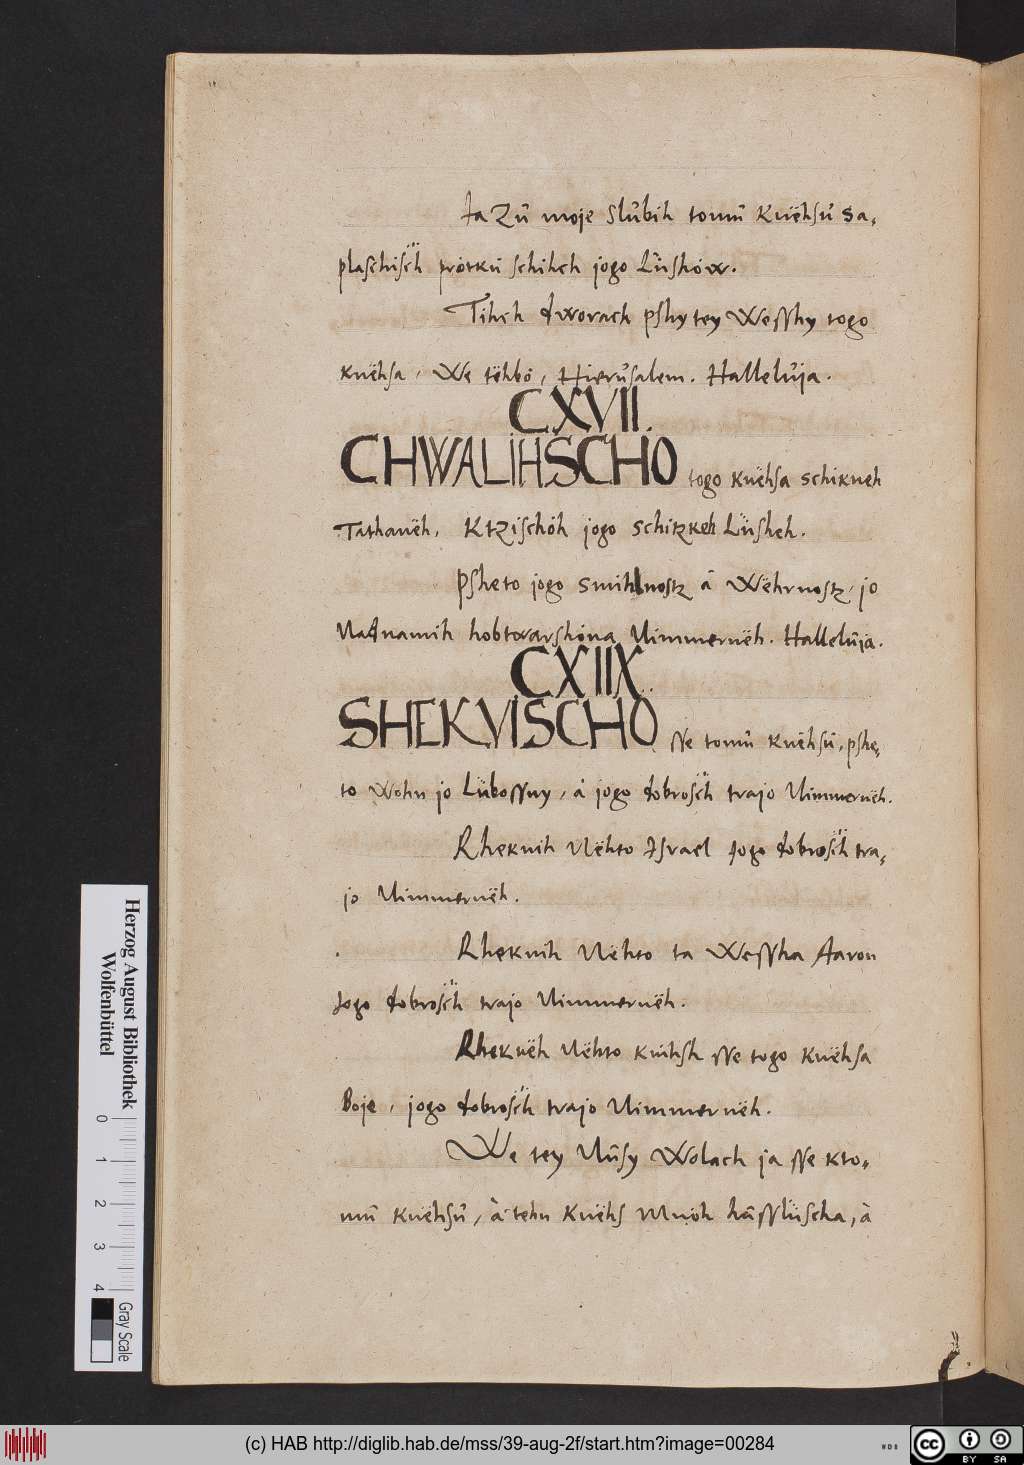 Ja Zů moje Slůbih tomů Knëhsů Sa,
plaschisch prötkü schihch jogo Lüshów.
Tihch dworach pshy tey Wesshy togo
knëhsa, We tëhbö, Hierůsalem. Halleluja.
CXVII.
CHWALIHSCHO togo knëhsa schikneh
Tathanëh. Ktzischöh jogo schitzkeh Lüsheh.
Psheto jogo smihlnostz à Wëhrnostz, jo
Nadnamih hobtwarshóna Nimmernëh. Halleluja.
CXIIX.
SHEKVISCHO sse tomů knëhsů, pshe,
to wohn jo Lübossny, à jogo dobrosch trajo Nimmernëh.
Rheknih Nëhto Israel Jogo dobrosch tra,
jo Nimmernëh.
Rheknih Nëhto ta Wessha Aaron
Jogo dobrosch trajo Nimmernëh.
Rheknëh Nëhto knihsh sse togo knëhsa
Boje, jogo dobrosch trajo Nimmernëh.
We tey Nůsy Wolach ja sse kto,
mů knëhsů, à tehn Knëhs Mnöh hůsslüscha, à
Herzog August Bibliothek
Wolfenbüttel
0 1 2 3 4
Gray Scale
(c) HAB http://diglib.hab.de/mss/39-aug-2f/start.htm?image=00284
WDB
cc BY SA